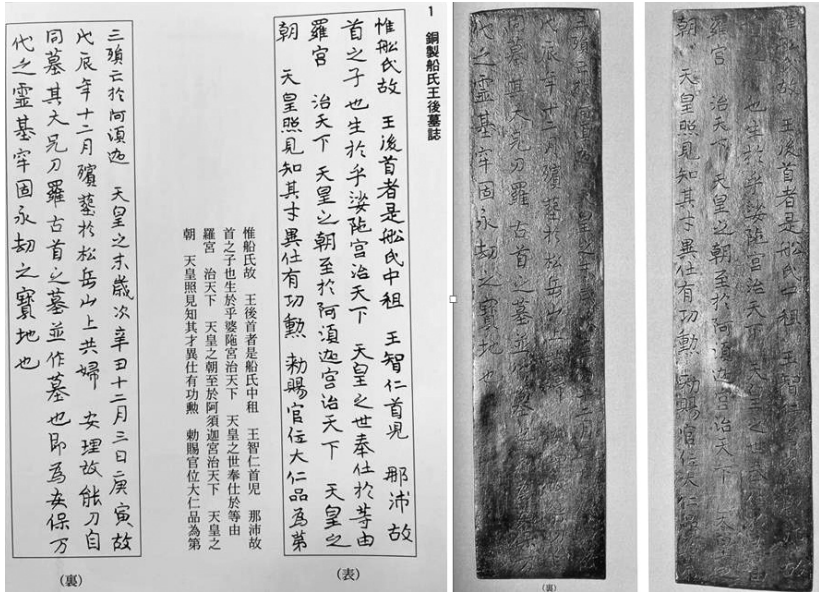 1 銅製船氏王後墓誌
惟舩氏故 王後首者是舩氏中租 王智仁首児 那沛故
首之子也生於乎娑陁宮治天下 天皇之世奉仕於等由
羅宮 治天下 天皇之朝至於阿湏迦宮治天下 天皇之
朝 天皇照見知其才異仕有功勲 勅賜官位大仁品為第
(表)
惟船氏故 王後首者是船氏中租 王智仁首児 那沛故
首之子也生於乎婆陁宮治天下 天皇之世奉仕於等由
羅宮 治天下 天皇之朝至於阿須迦宮治天下 天皇之
朝 天皇照見知其才異仕有功勲 勅賜官位大仁品為第
三殞亡於阿湏迦 天皇之末歳次辛丑十二月三日庚寅故
戊辰年十二月殯葬於松岳山上共婦 安理故能刀自
同墓其大兄刀羅古首之墓並作墓也即為安保万
代之霊基牢固永劫之寶地也
(裏)
惟舩氏故 王後首者是舩氏中租 王智
也生於乎娑陁宮治天
羅宮 治天下 天皇之朝至於阿湏迦宮治天下
朝 天皇照見知其才異仕有功勲 勅賜官位大仁
三殞亡於
戊辰年十二月殯葬於松岳山上
同墓其大兄刀羅古首之墓並作墓
代之霊基牢固永劫之寶地也
(裏)